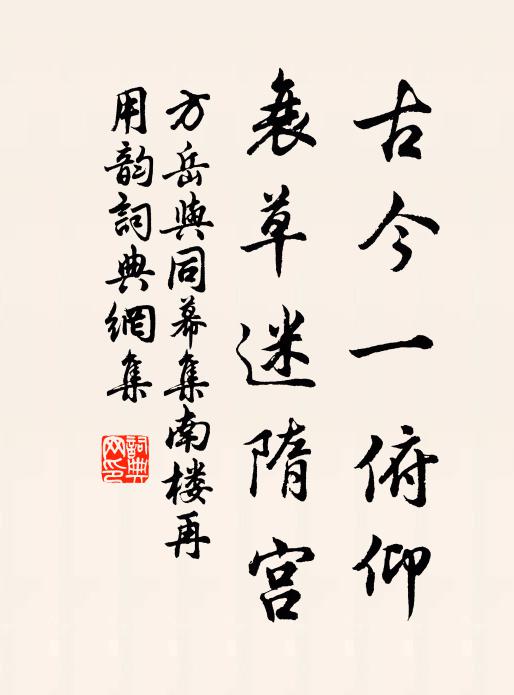 古今一俯仰
衰草迷隋宫
方岳與同幕集南楼再
用韵詞典網集
詞典网印